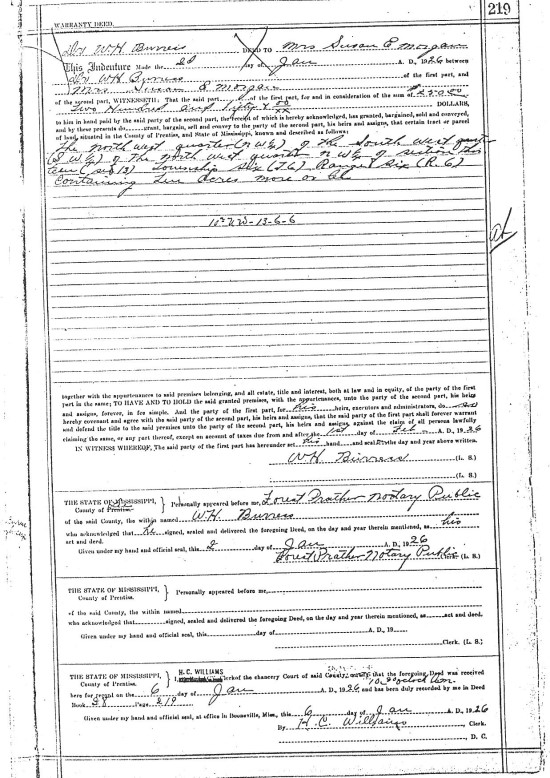 219
WARRANTY DEED.
Dr W H Burress DEED TO Mrs Susan E Morgan
This Indenture Made the 2d day of Jan A. D., 1926 between
Dr W H Burress of the first part, and
Mrs Susan E Morgan
of the second part, WITNESSETH: That the said part of the first part, for and in consideration of the sum of
Two Hundred and Fifty & 00/xx DOLLARS,
to him in hand paid by the said party of the second part, the receipt of which is hereby acknowledged, has granted, bargained, sold and conveyed,
and by these presents do grant, bargain, sell and convey to the party of the second part, his heirs and assigns, that certain tract or parcel
of land, situated in the County of Prentiss, and State of Mississippi, known and described as follows:
The North West quarter (N W ¼) of the South West
(S W ¼) of The North West quarter N W ¼ of section
teen (sec 13) Township Six (T. 6) Range Six (R. 6)
Containing Ten Acres more or
NW-13-6-6
together with the appurtenances to said premises belonging, and all estate, title and interest, both at law and in equity, of the party of the first
part in the same; TO HAVE AND TO HOLD the said granted premises, with the appurtenances, unto the party of the second part, his heirs
and assigns, forever, in fee simple. And the party of the first part, for his heirs, executors and administrators, do
hereby covenant and agree with the said party of the second part, his heirs and assigns, that the said party of the first part shall forever warrant
and defend the title to the said premises unto the party of the second part, his heirs and assigns, against the claim of all persons lawfully
claiming the same, or any part thereof, except on account of taxes due from and after the 1st day of Feb A. D., 1926
IN WITNESS WHEREOF, The said party of the first part has hereunto set his hand and seal the day and year above written.
W H Burress (L. S.)
(L. S.)
THE STATE OF MISSISSIPPI, County of Prentiss. } Personally appeared before me, Forest Prather Notary Public
of the said County, the within named W H Burress
who acknowledged that he signed, sealed and delivered the foregoing Deed, on the day and year therein mentioned, as his
act and deed.
Given under my hand and official seal, this 2 day of Jan A. D., 1926
Forest Prather Notary Public (L. S.)
THE STATE OF MISSISSIPPI, County of Prentiss. } Personally appeared before me,
of the said County, the within named
who acknowledged that signed, sealed and delivered the foregoing Deed, on the day and year therein mentioned, as act and deed.
Given under my hand and official seal, this day of A. D., 19
Clerk. (L. S.)
H. C. WILLIAMS
THE STATE OF MISSISSIPPI, County of Prentiss. } I, Clerk of the chancery Court of said County, certify that the foregoing Deed was received
here for record on the 6 day of Jan A. D., 1926 and has been duly recorded by me in Deed
Book 38 Page 219
Given under my hand and official seal, at office in Booneville, Miss., this 6 day of Jan A. D., 1926
By H. C. Williams Clerk.
D. C.